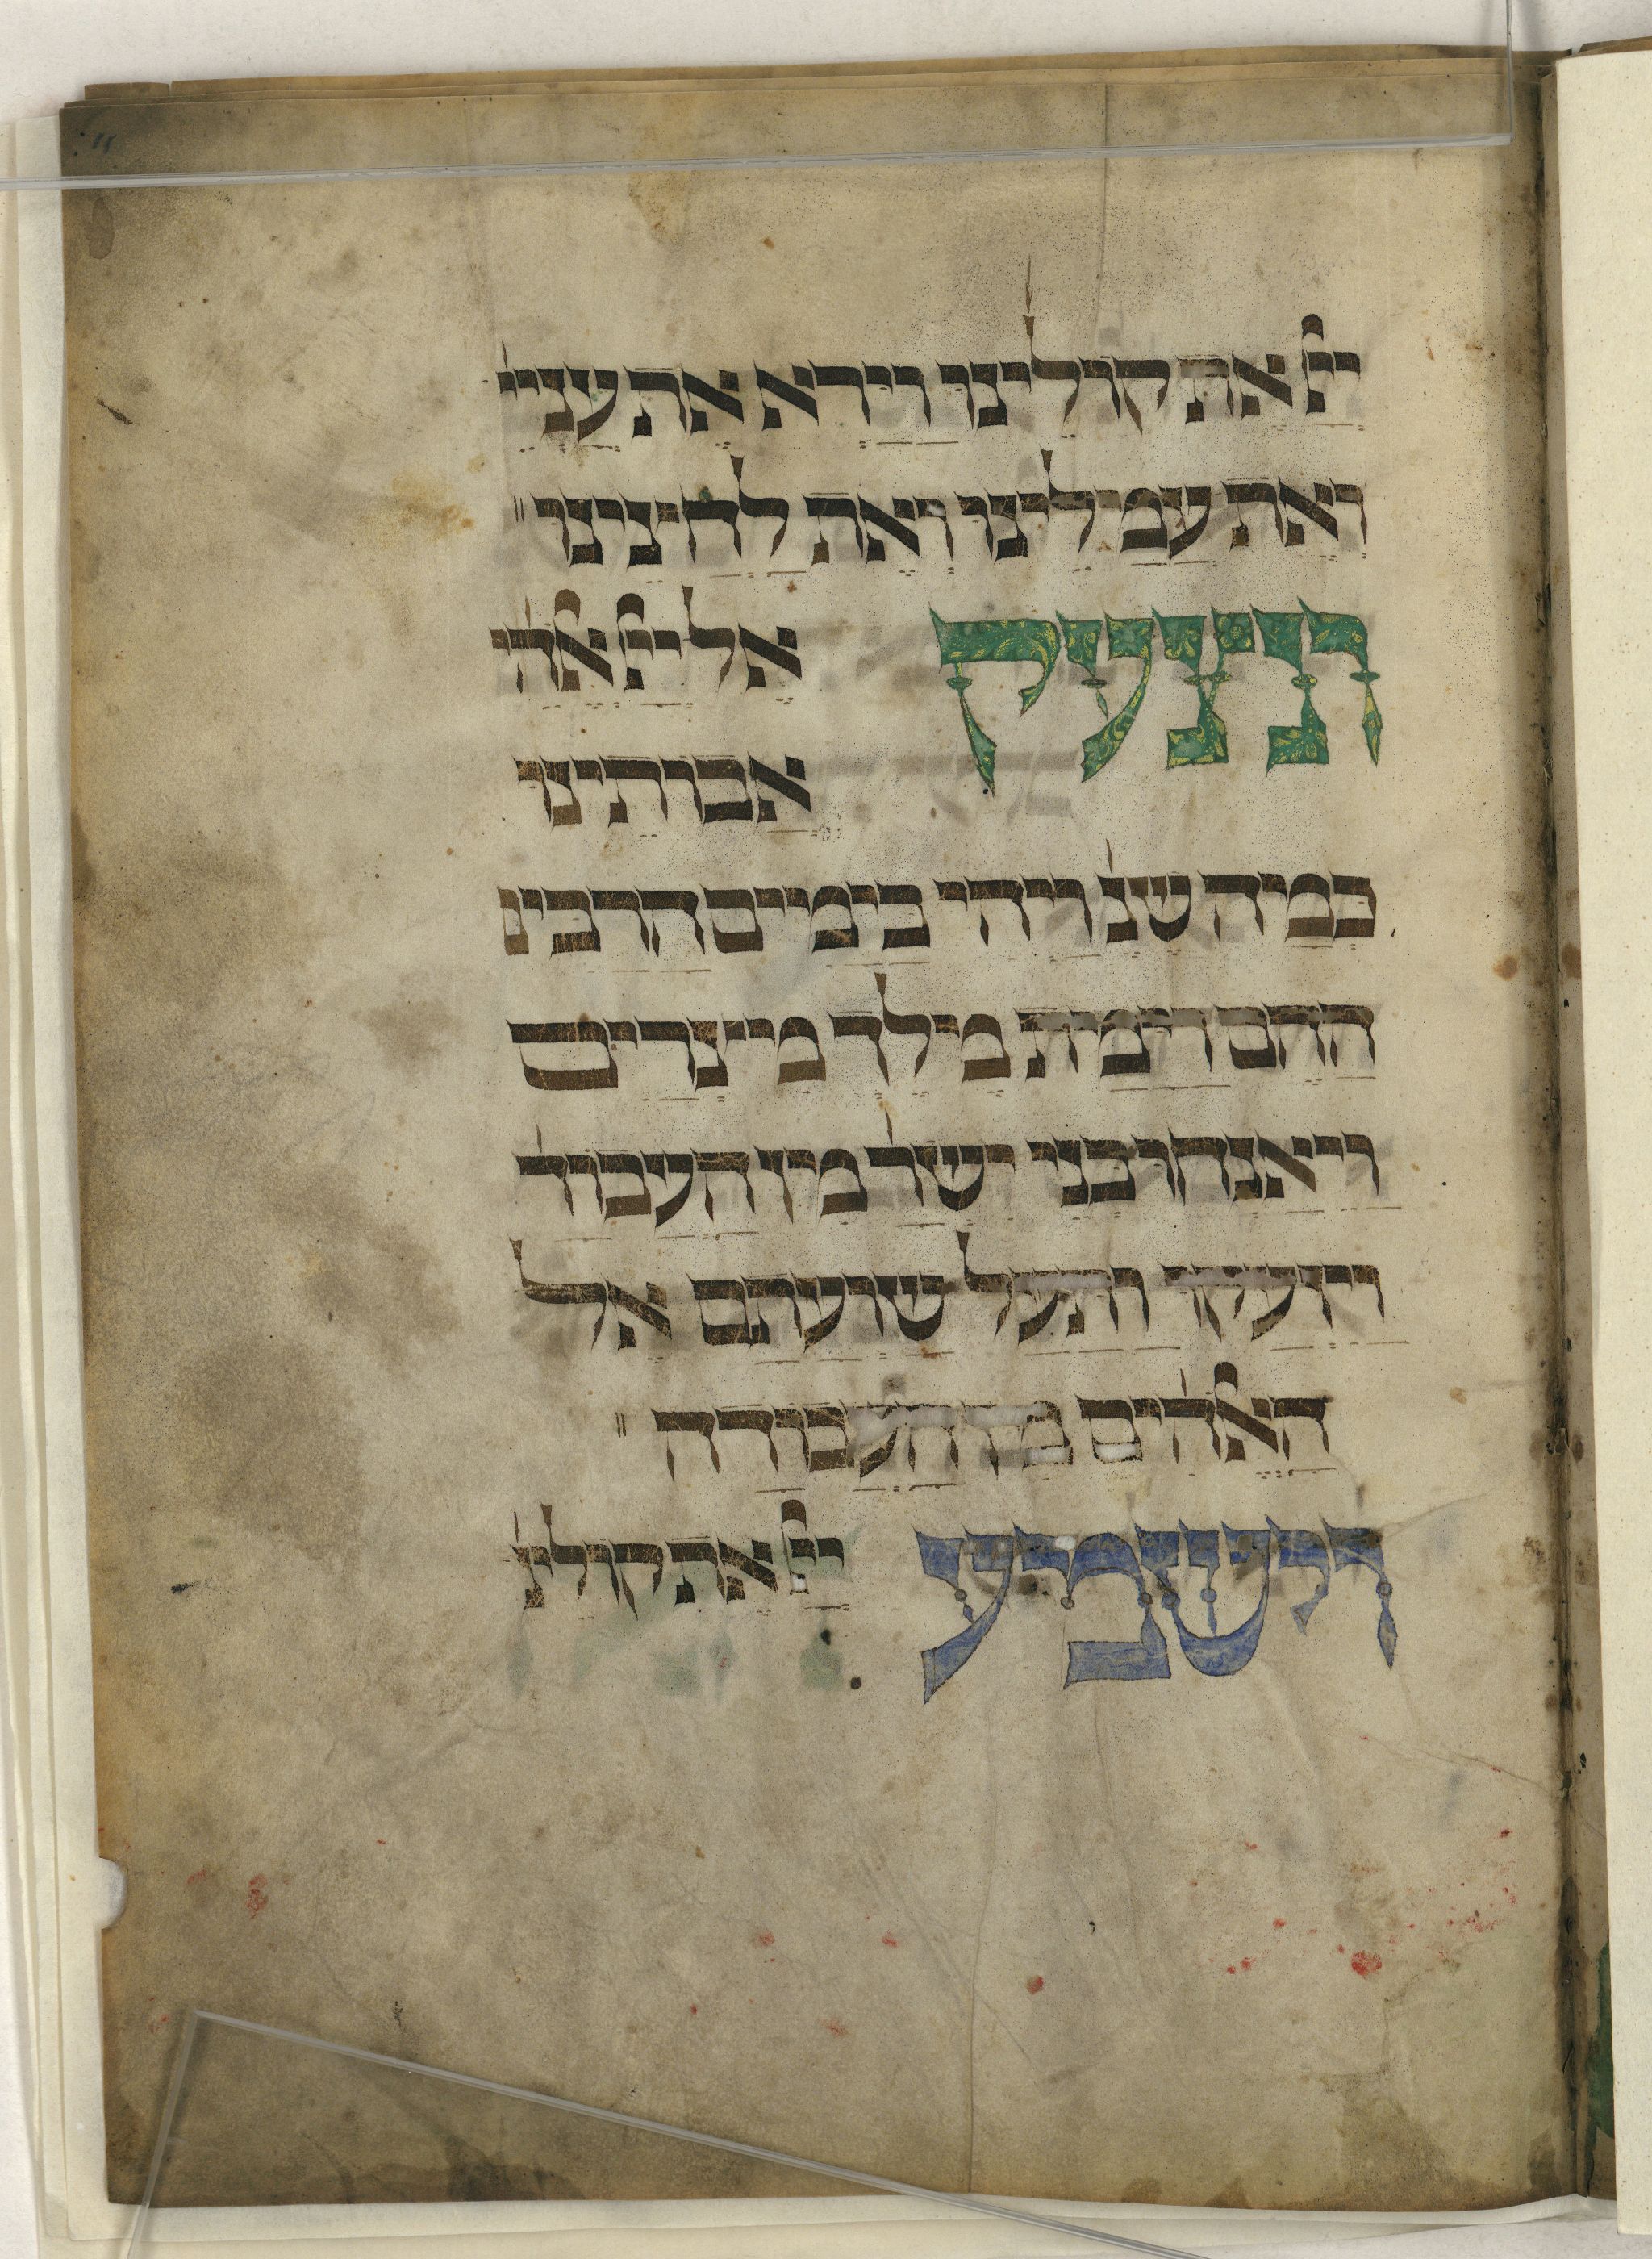 ייֿ את קולינו וירא את עניי
ואת עמלינו ואת לחצינו
ונצעק אל ייֿ אלהי
אבותינו
כמה שנ׳ ויהי בימים הרבים
ההם וימת מלך מיצרים
ויאנחו בני ישר׳ מן העבוד׳
ויזעקו ותעל שועתם אל
האלהים מן העבודה
וישמע ייֿ את קולינ׳